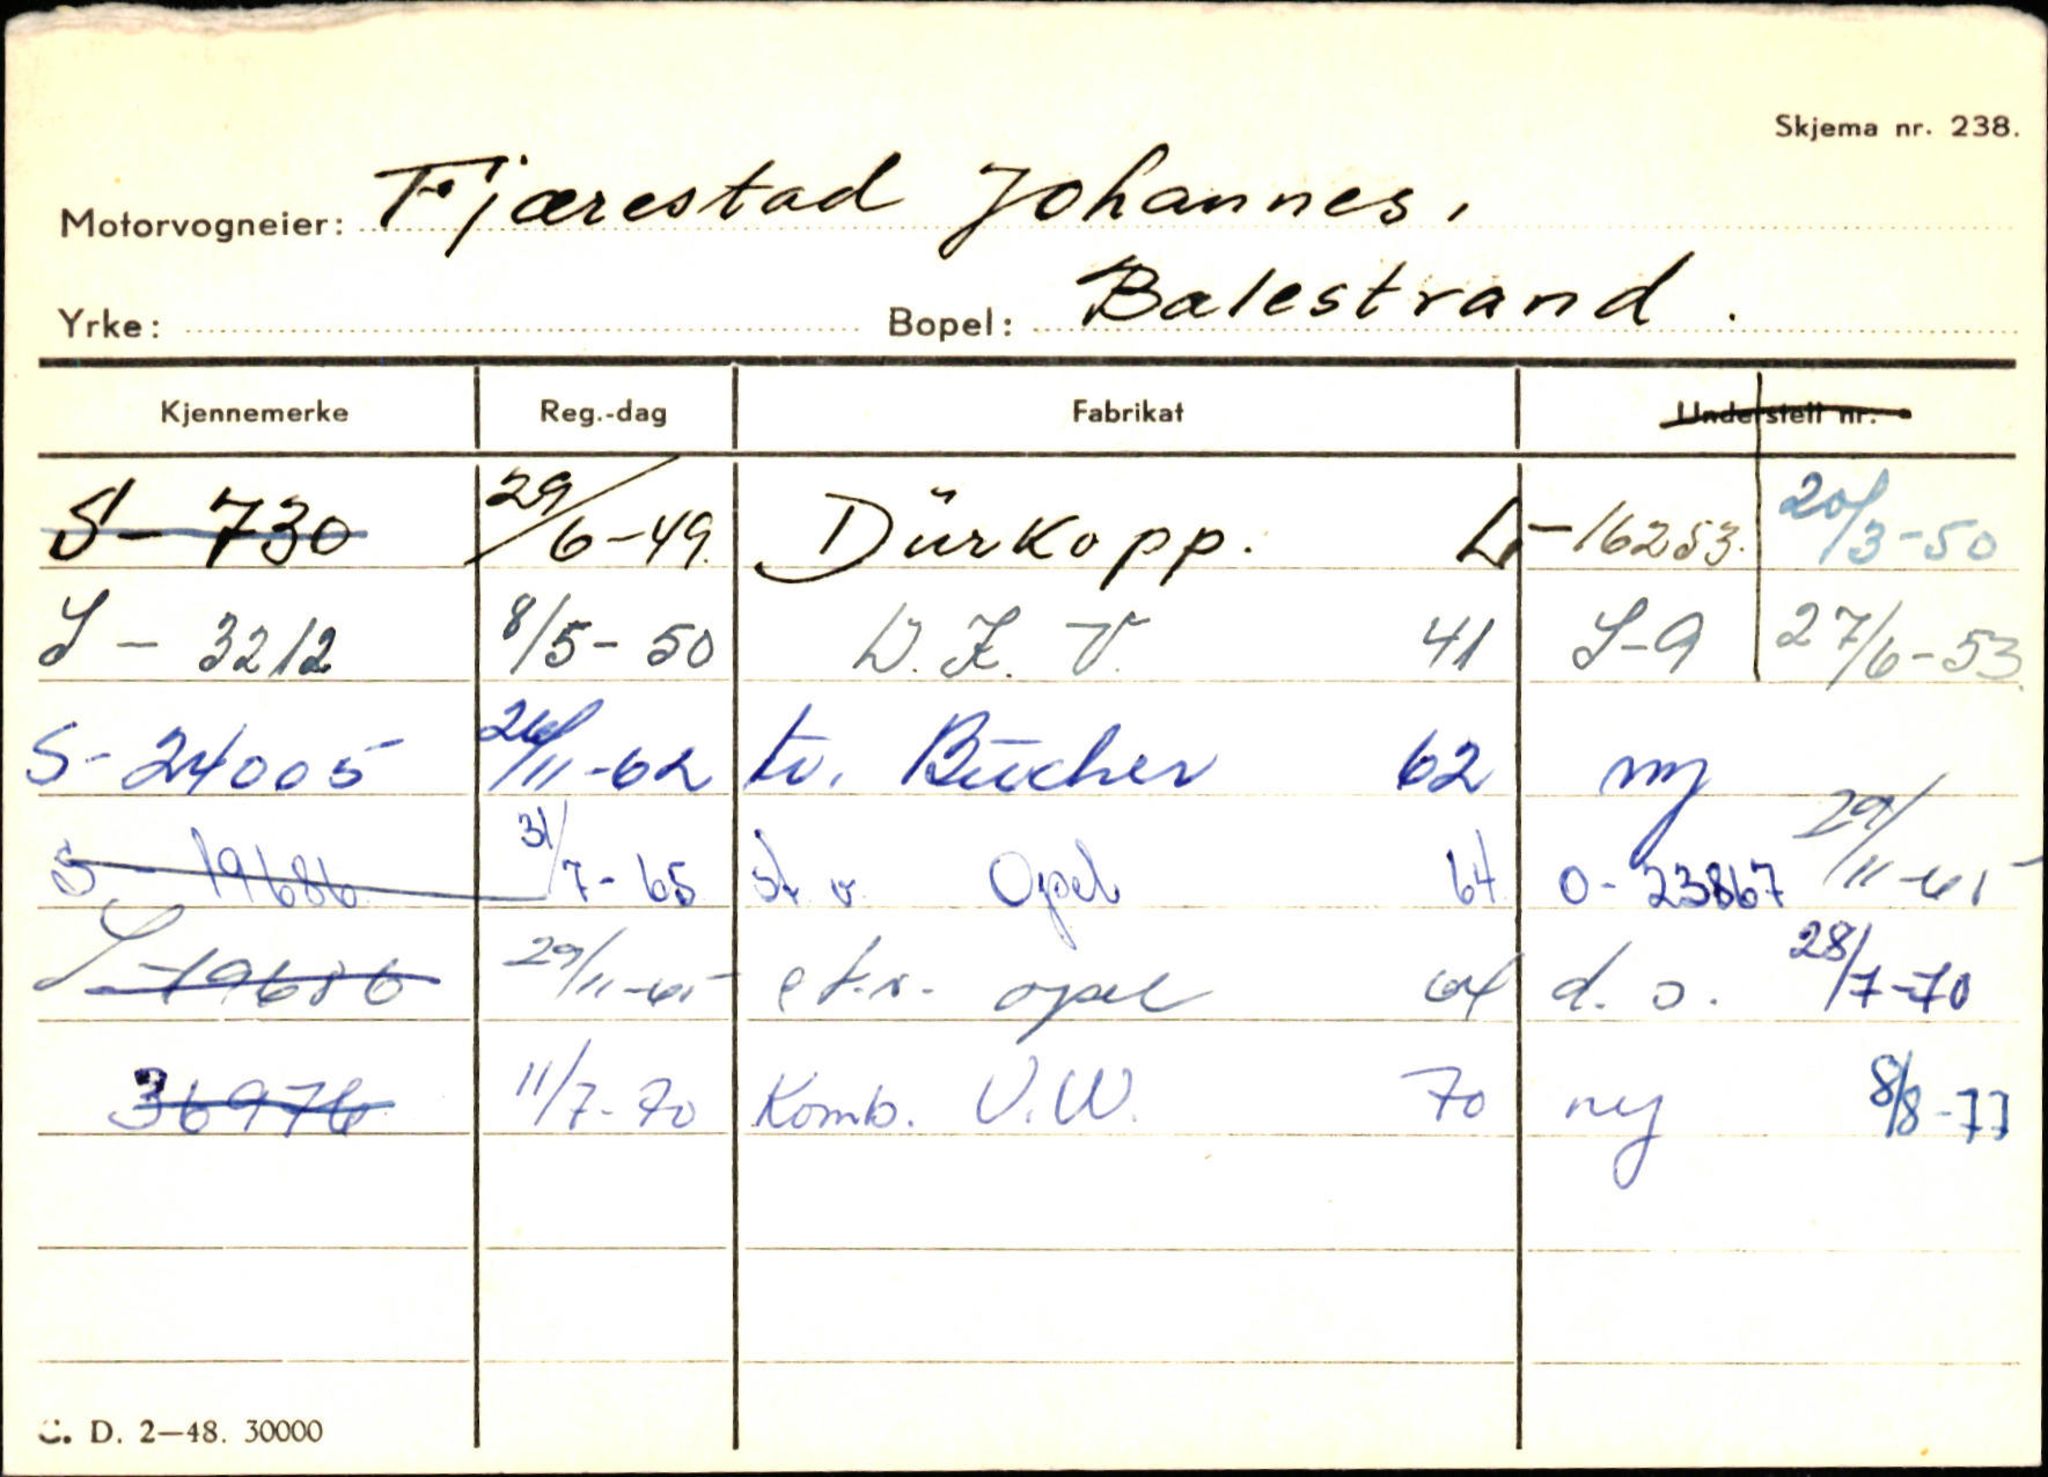 Skjema nr. 238.
Motorvogneier: Fjærestad Johannes,
Yrke: Bopel: Balestrand.
Kjennemerke Reg.-dag Fabrikat Understell nr.
S - 730 29/6-49. Dürkopp. L-16253. 20/3-50
S - 3212 8/5-50 41 S-9 27/6-53.
S-24005 26/11-62 tv. Bücher 62 ny
S - 19686 31/7-65 st v. Opel 64 O-23867 29/11-65
S-19686 29/11-65 st.v. opel 64 d.o. 28/7-70
36976 11/7-70 Komb. V.W. 70 ny 8/8-77
D. 2—48. 30000